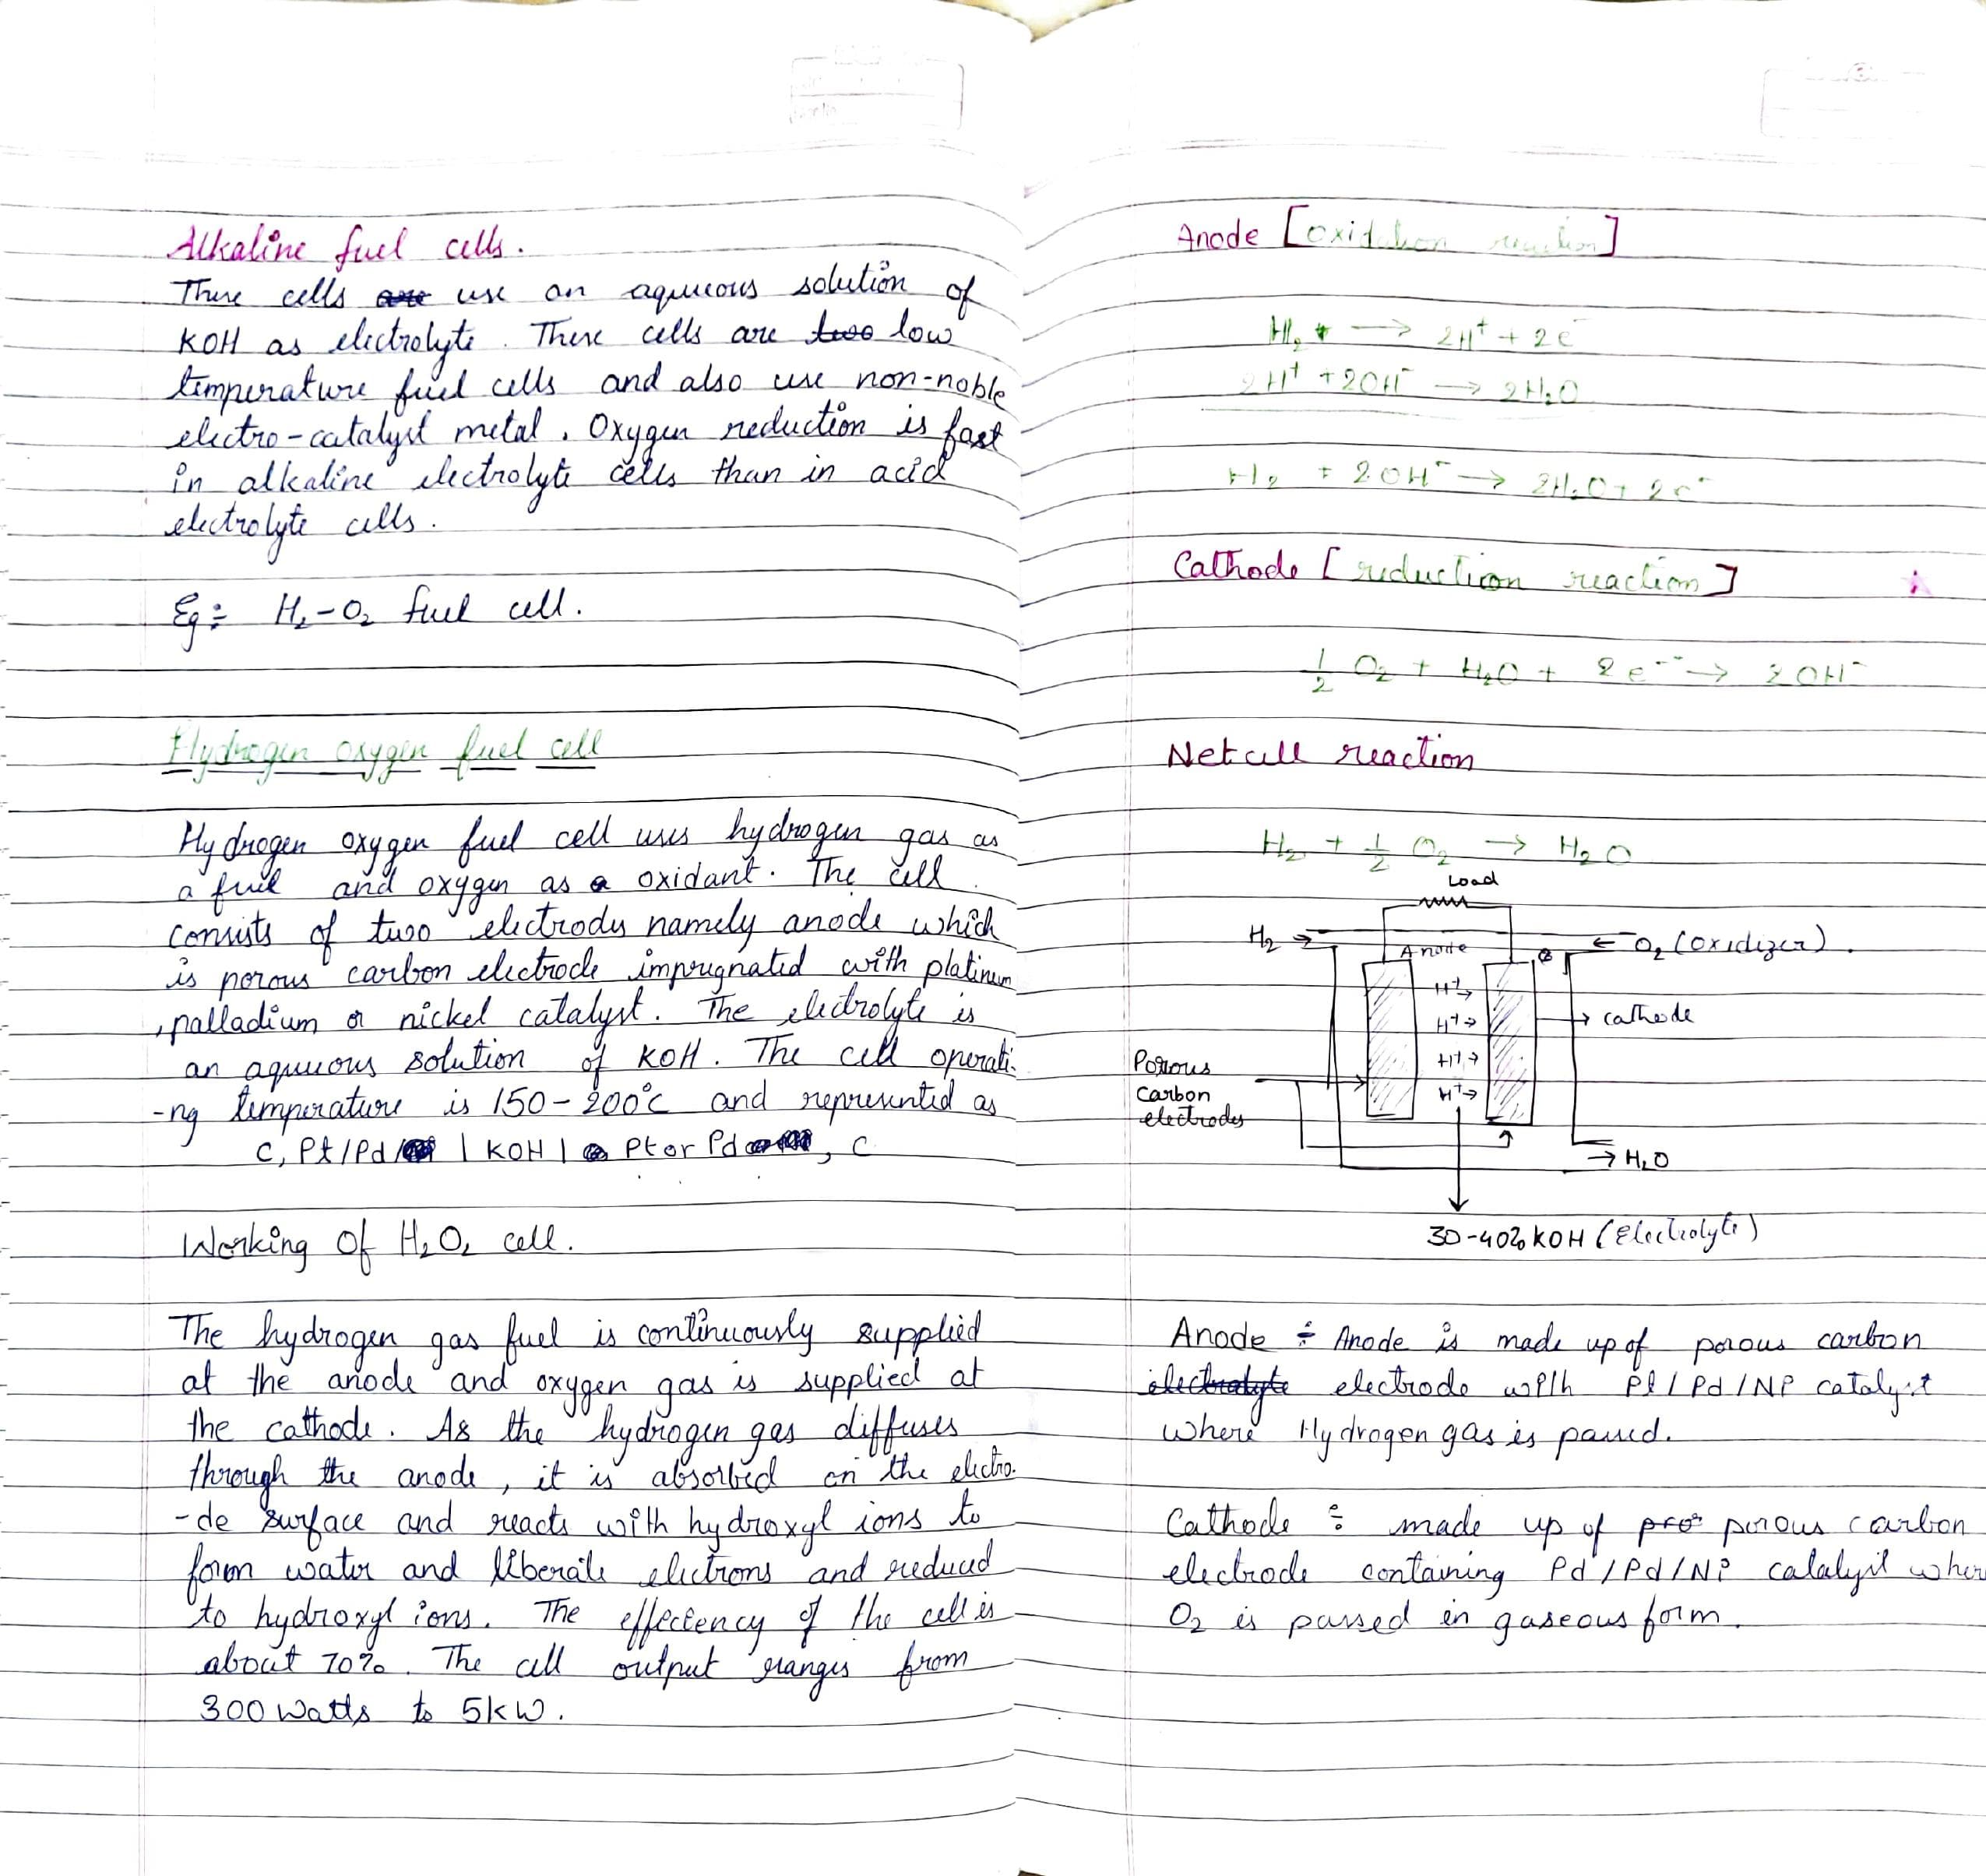 Alkaline fuel cells.
These cells are use an aqueous solution of
KOH as electrolyte. These cells are two low
temperature fuel cells and also use non-noble
electro-catalyst metal. Oxygen reduction is fast
in alkaline electrolyte cells than in acid
electrolyte cells.
Eg÷ H₂-O₂ fuel cell.
Hydrogen oxygen fuel cell
Hydrogen oxygen fuel cell uses hydrogen gas as
a fuel and oxygen as a oxidant. The cell
consists of two electrodes namely anode which
is porous carbon electrode impregnated with platinum
, palladium or nickel catalyst. The electrolyte is
an aqueous solution of KOH. The cell operati-
-ng temperature is 150-200°c and represented as
C, Pt/Pd/ | KOH | Pt or Pd , C
Working Of H₂O₂ cell.
The hydrogen gas fuel is continuously supplied
at the anode and oxygen gas is supplied at
the cathode. As the hydrogen gas diffuses
through the anode, it is absorbed on the electro-
-de surface and reacts with hydroxyl ions to
form water and liberate electrons and reduced
to hydroxyl ions. The effeciency of the cell is
about 70%. The cell output ranges from
300 Watts to 5kW.
Anode [oxidation reaction]
H₂ → 2H⁺ + 2e⁻
2H⁺ + 2OH⁻ → 2H₂O
H₂ + 2OH⁻ → 2H₂O + 2e⁻
Cathode [reduction reaction]
1/2 O₂ + H₂O + 2e⁻ → 2OH⁻
Net cell reaction
H₂ + 1/2 O₂ → H₂O
Load
H₂ →
Anode
← O₂ (oxidizer).
H⁺→
H⁺→
→ cathode
H⁺→
H⁺→
Porous
Carbon
electrodes
→ H₂O
30-40% KOH (Electrolyte)
Anode ÷ Anode is made up of porous carbon
electrolyte electrode with Pt/Pd/Ni catalyst
where Hydrogen gas is passed.
Cathode ÷ made up of pro porous carbon
electrode containing Pd/Pd/Ni catalyst wher
O₂ is passed in gaseous form.